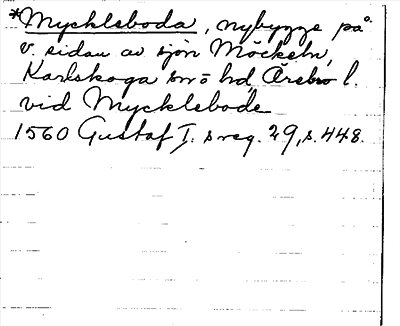 *Myckleboda, nybygge på
v. sidan av sjön Möckeln,
Karlskoga sn o hd, Örebro l.
vid Mycklebode
1560 Gustaf I:s reg. 29, s. 448.